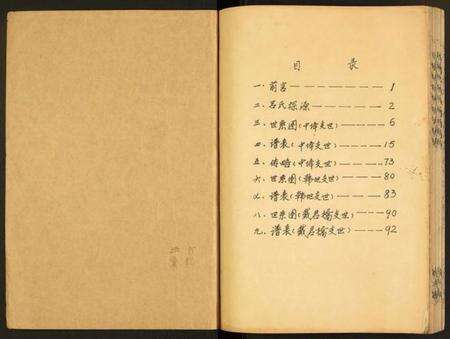 目 录
一、前言 ———————— 1
二、吕氏探源 ————— 2
三、世系图(中伟支世) ——— 6
四、谱表(中伟支世) ———— 15
五、传略(中伟支世) ———— 73
六、世系图(韩地支世) ——— 80
七、谱表(韩地支世) ———— 83
八、世系图(戴居桥支世) ——— 90
九、谱表(戴居桥支世) ——— 92